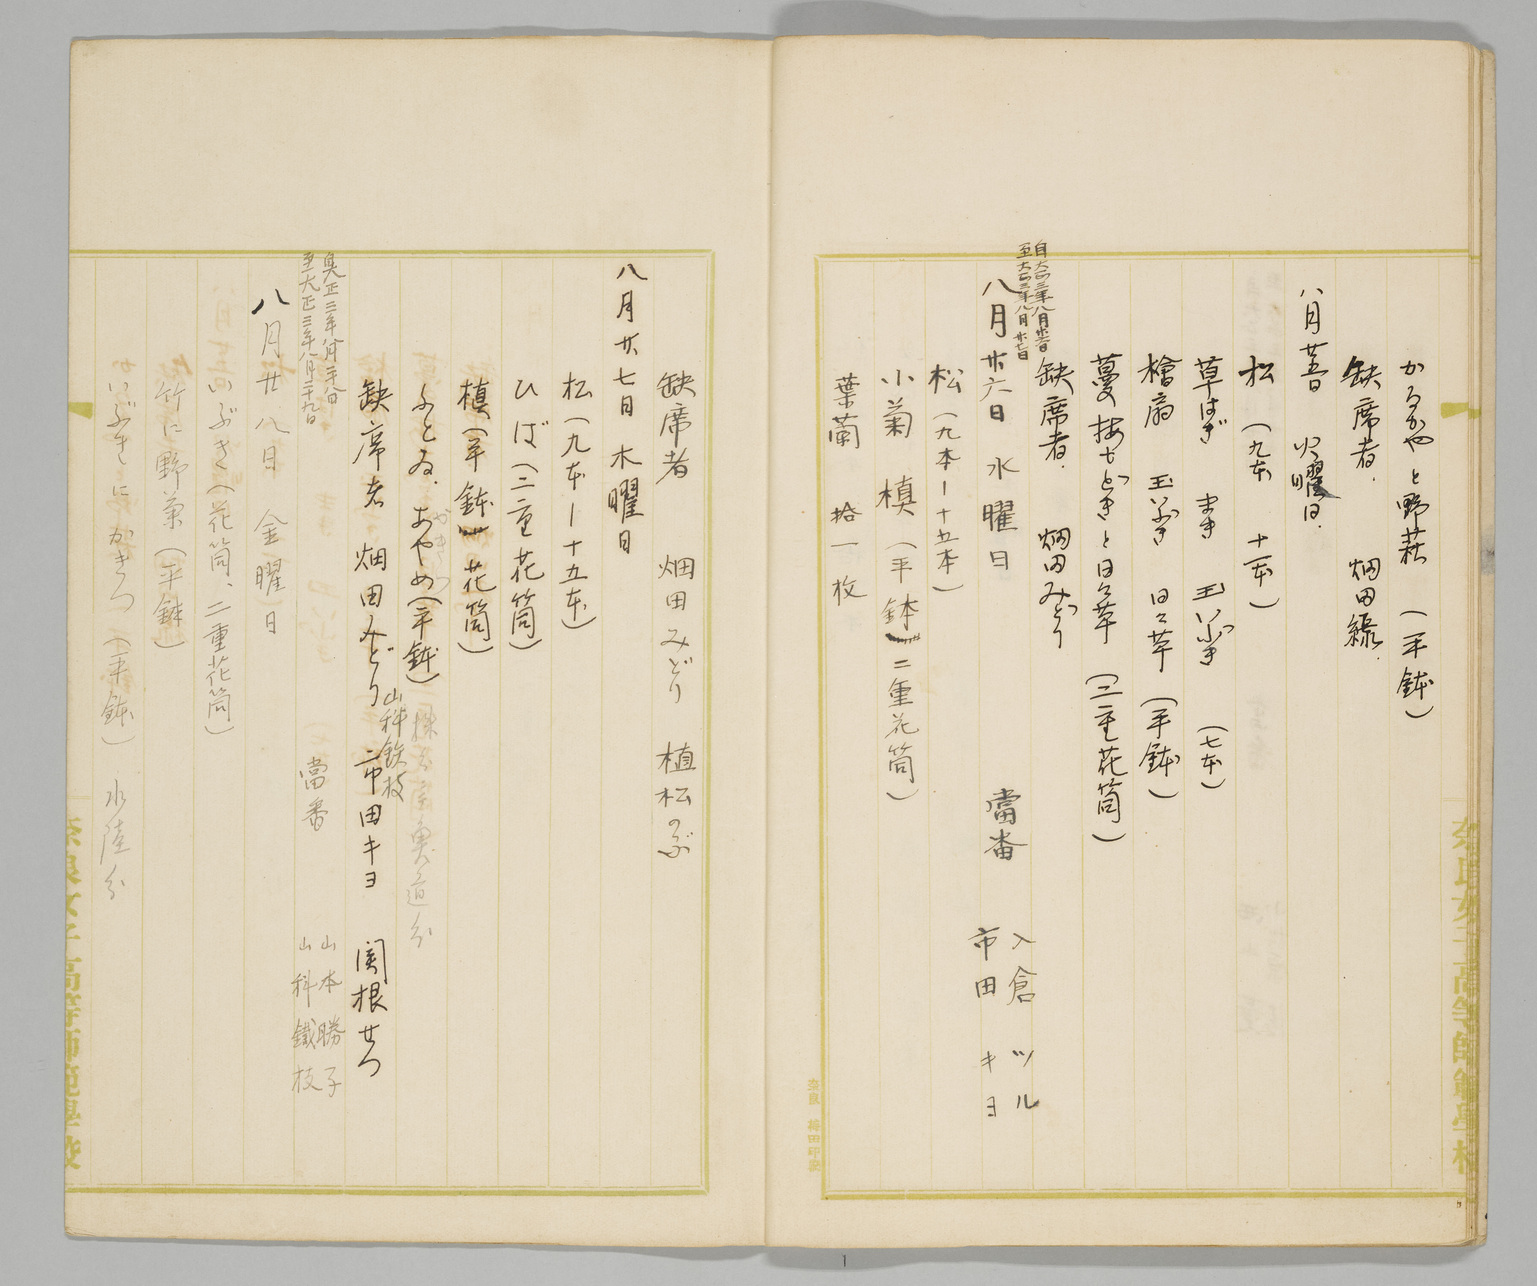 かるかやと野萩 (平鉢)
缺席者. 畑田綠.
八月廿五日 火曜日.
松 (九本 十一本)
草はぎ まき 玉いぶき (七本)
檜扇 玉いぶき 日々草 (平鉢)
蔓擬と日々草 (二重花筒)
缺席者. 畑田みどり
自大正三年八月廿六日
至大正三年八月廿七日
八月廿六日 水曜日 當番 入倉ツル 市田キヨ
松(九本ー十五本)
小菊 槙 (平鉢)二重花筒)
葉蘭 拾一枚
奈良女子高等師範學校
缺席者 畑田みどり 植松のぶ
八月廿七日 木曜日
松(九本ー十五本)
ひば(二重花筒)
槙(平鉢)花筒)
ふとゐ. あやめ(平鉢) 魚道分
缺席者 畑田みどり 山科鉄枝 市田キヨ 関根せつ
至大正三年八月二十九日
當番 山本勝子 山科鐵枝
八月廿八日 金曜日
いぶき(花筒、二重花筒)
竹に野菊 (平鉢)
いぶきにかきつ (平鉢) 水陸分
奈良女子高等師範學校